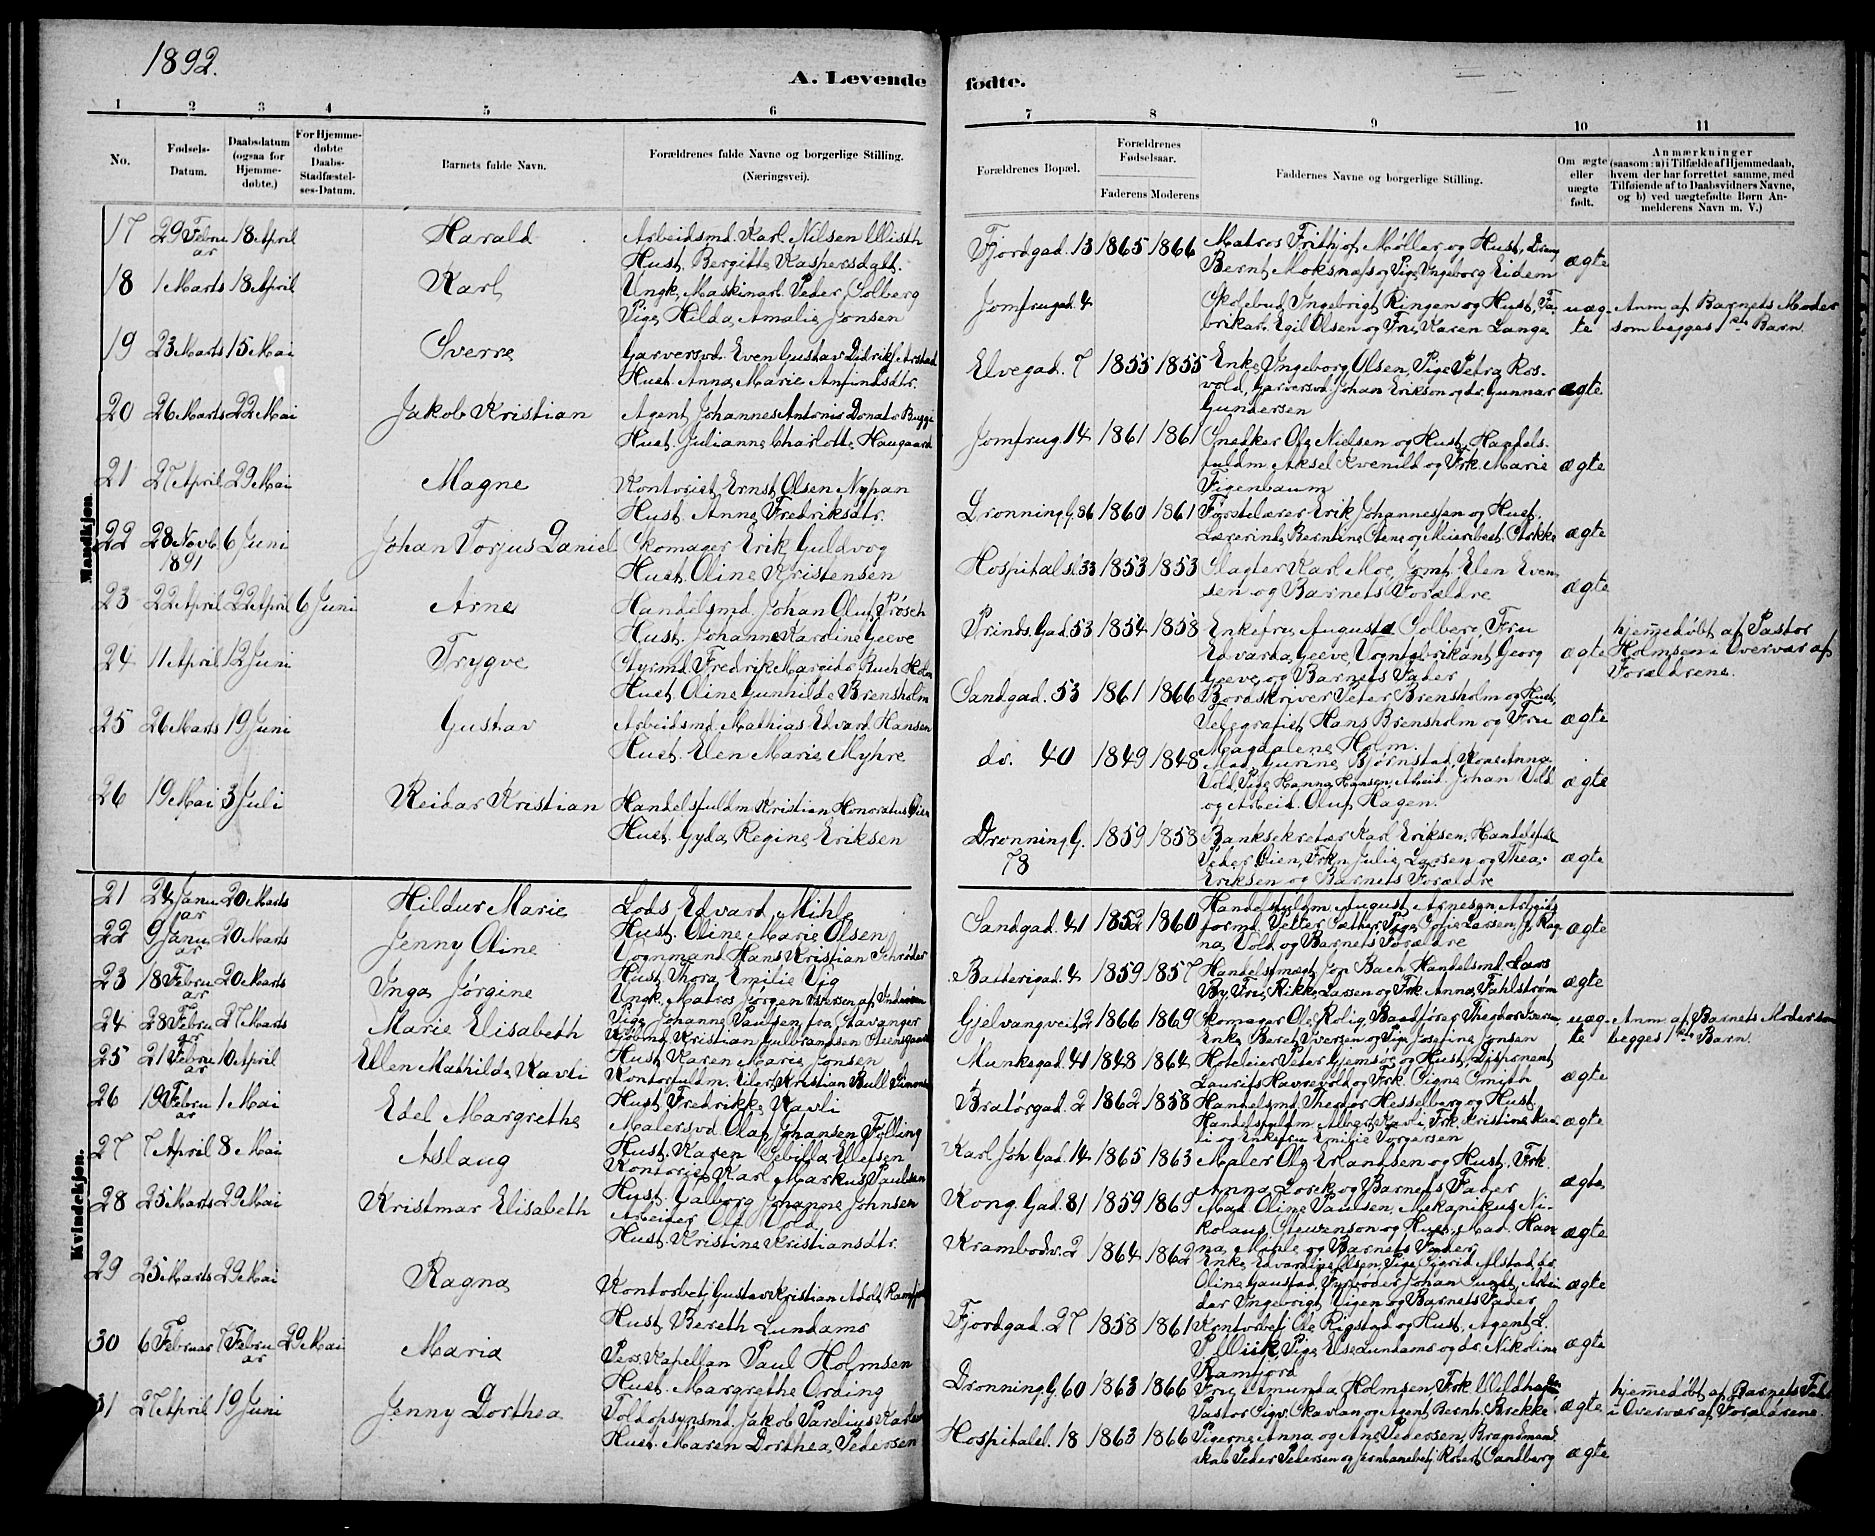 1892.
A. Levende fødte.
1 2 3 4 5 6 7 8 9 10 11
No.
Fødsels-Datum.
Daabsdatum (ogsaa for Hjemme-døbte.)
For Hjemme-døbte Daabs-Stadfæstel-ses-Datum.
Barnets fulde Navn.
Forældrenes fulde Navne og borgerlige Stilling.
(Næringsvei).
Forældrenes Bopæl.
Forældrenes Fødselsaar.
Faderens Moderens
Faddernes Navne og borgerlige Stilling.
Om ægte eller uægte født.
Anmærkninger
(saasom: a) i Tilfælde af Hjemmedaab,
hvem der har forrettet samme, med
Tilføiende af to Daabsvidners Navne,
og b) ved uægtefødte Børn An-
melderens Navn m. V.)
Mandkjøn.
17 29 Febru 18 April Harald Arbeidsmd. Karl Nilsen Wisth Fjordgad. 13 1865 1866 Matros Frithjof Møller og Hust, ægte
ar Hust. Bergitte Kaspersdatt. Bernt Moksnæs og Pige Ingeborg Eidem
18 1 Marts 18 April Karl Ungk. Maskinarb. Peder Solberg Jomfrugad. 4 Skolebud Ingebrigt Ringen og Hust, Fa- uæg- Anm. af Barnets Moder
Pige Hilda Amalie Jonsen brikarb. Egil Olsen og Fru Karen Lange te som begges 1ste Barn.
19 23 Marts 15 Mai Sverre Garversvd. Even Gustav Didriks. Arstad Elvegad. 7 1855 1855 Enke Ingeborg Olsen, Pige Petra Ros-
Hust. Anna Marie Anfindsdtr. vold, Garversvd. Johan Erikson og do. Gunnar ægte
Gundersen
20 26 Marts 22 Mai Jakob Kristian Agent Johannes Antonio Donato Bugge Jomfrug. 14 1861 1861 Snedker Ole Nielsen og Hust, Handels-
Hust. Julianne Charlotte Haugaard fuldm. Aksel Kvenild og Frk. Marie ægte
Figenbaum
21 27 April 29 Mai Magne Kontorist Ernst Olsen Nypan Dronning G. 86 1860 1861 Førstelærer Erik Johannessen og Hust.
Hust. Anna Fredriksdtr. Lærerinde Berntine Stene og Meieribest. Stokke ægte
22 28 Novb 6 Juni Johan Torjus Daniel Skomager Erik Guldvog Hospitalsl. 33 1853 1853 Slagter Karl Moe, Jomf. Elen Even-
1891 Hust. Oline Kristensen sen og Barnets Forældre ægte
23 22 April 22 April 6 Juni Arne Handelsmd. Johan Oluf Prøsch Prinds. Gad. 53 1854 1858 Enkefru Augusta Solberg, Fru hjemmedøbt af Pastor
Hust. Johanne Karoline Geeve Edvarda Geeve, Vognfabrikant Georg ægte Holmsen i Overvær af
Geeve og Barnets Fader Forældrene.
24 11 April 12 Juni Trygve Styrmd. Fredrik Buch Holm Sandgad. 53 1861 1866 Bordskriver Peter Brensholm og Hust,
Hust. Oline Gunhilde Brensholm Telegrafist Hans Brensholm og Fru ægte
Magdalene Holm.
25 26 Marts 19 Juni Gustav Arbeidsmd. Mathias Edvard Hansen do. 40 1849 1848 Mad. Gurine Bjørnstad, Kone Anna
Hust. Elen Marie Myhre Vold, Pige Hanna Hansen, Arbeid. Johan Vold ægte
og Arbeid. Oluf Hagen.
26 19 Mai 3 Juli Reidar Kristian Handelsfuldm. Kristian Honoratus Øien Dronning G. 78 1859 1858 Banksekretær Karl Eriksen, Handelsfuldm.
Hust. Gyda Regine Eriksen Peder Øien, Frkn Julie Larsen og Thea ægte
Eriksen og Barnets Forældre
Kvindekjøn.
21 24 Janu 20 Marts Hildur Marie Lods Edvard Mihle Sandgad. 41 1852 1860 Handelsfuldm. August Arnesen, Arbeids-
ar Hust. Oline Marie Olsen formd. Petter Sæther, Pige Sofie Larsen, Jf. Rag- ægte
na Vold og Barnets Forældre
22 9 Janu 20 Marts Jenny Oline Vognmand Hans Kristian Schrøder Batterigad. 4 1859 1857 Handelsfuldmægt. Jon Bach, Handelsmd. Lars
ar Hust. Thora Emilie Vig By, Fru Rikke Larsen og Frk. Anna Fahlstrøm ægte
23 18 Febru 20 Marts Inga Jørgine Ungk. Matros Jørgen Iversen af Inderøen Gjelvangvei. 2 1866 1869 Skomager Ole Rolig, Baadfører Theodor Iversen, uæg- Anm. af Barnets Moder som
ar Pige Johanne Paulsen fra Stavanger Enke Beret Iversen og Pige Josefine Jonsen te begges 1ste Barn.
24 28 Febru 27 Marts Marie Elisabeth Kjøbmd. Kristian Gulbrandsen Steensgaard Munkegad. 41 1848 1864 Hoteleier Peter Gjemsøe og Hust, Disponent
ar Hust. Karen Marie Jonsen Laurits Havrevold og Frk. Signe Smith ægte
25 21 Febru 10 April Ellen Mathilde Kavli Kontorfuldm. Eiler Kristian Bull Simonsen Bratørgad. 2 1862 1858 Handelsmd. Theodor Hesselberg og Hust,
ar Hust. Fredrikke Kavli Handelsfuldm. Albert Kavli, Frk. Kristine Kav- ægte
li og Enkefru Emilie Torgersen
26 19 Febru 1 Mai Edel Margrethe Malersvd. Olaf Johansen Følling Karl Joh. Gad. 14 1865 1863 Maler Ole Erlandsen og Hust, Frk.
ar Hust. Karen Sebilla Ellefsen Anna Lorck og Barnets Fader ægte
27 7 April 8 Mai Aslaug Kontorist Karl Markus Paulsen Kong. Gad. 81 1859 1869 Mad. Oline Paulsen, Mekanikus Ni-
Hust. Valborg Johanne Johnsen kolaus Stevenson og Hust, Mad. Han- ægte
na Mihle og Barnets Fader
28 25 Marts 29 Mai Kristmar Elisabeth Arbeider Ole Vold Krambodv. 2 1864 1862 Enke Edvardine Olsen, Pige Sigrid Alstad, do.
Hust. Kristine Kristiansdtr. Oline Gaustad, Fyrbøder Johan Sundt, Arbei- ægte
der Ingebrigt Vigen og Barnets Fader
29 25 Marts 29 Mai Ragna Kontorbet. Gustav Kristian Adolf Ramfjord Fjordgad. 27 1858 1861 Kontorbet. Ole Rigstad og Hust, Agent L.
Hust. Bereth Lundamo P. Wiik, Pige Else Lundamo og do. Nikoline ægte
Ramfjord
30 6 Februar 7 Febru 29 Mai Maria Pers. Kapellan Paul Holmsen Dronning G. 60 1863 1866 Fru Amunda Holmsen, Frk. Weldhagen, hjemmedøbt af Barnets Fader
ar Hust. Margrethe Ording Pastor Sigv. Skavlan og Agent Bernh. Brekke ægte i Overvær af Forældrene.
31 27 April 19 Juni Jenny Dorthea Toldopsynsmd. Jakob Parelius Karlsen Hospitalsl. 18 1863 1866 Pigerne Anna og Ane Pedersen, Brandmand-
Hust. Maren Dorthea Pedersen skab Peder Pedersen og Jernbanebetj. Robert Sandberg ægte